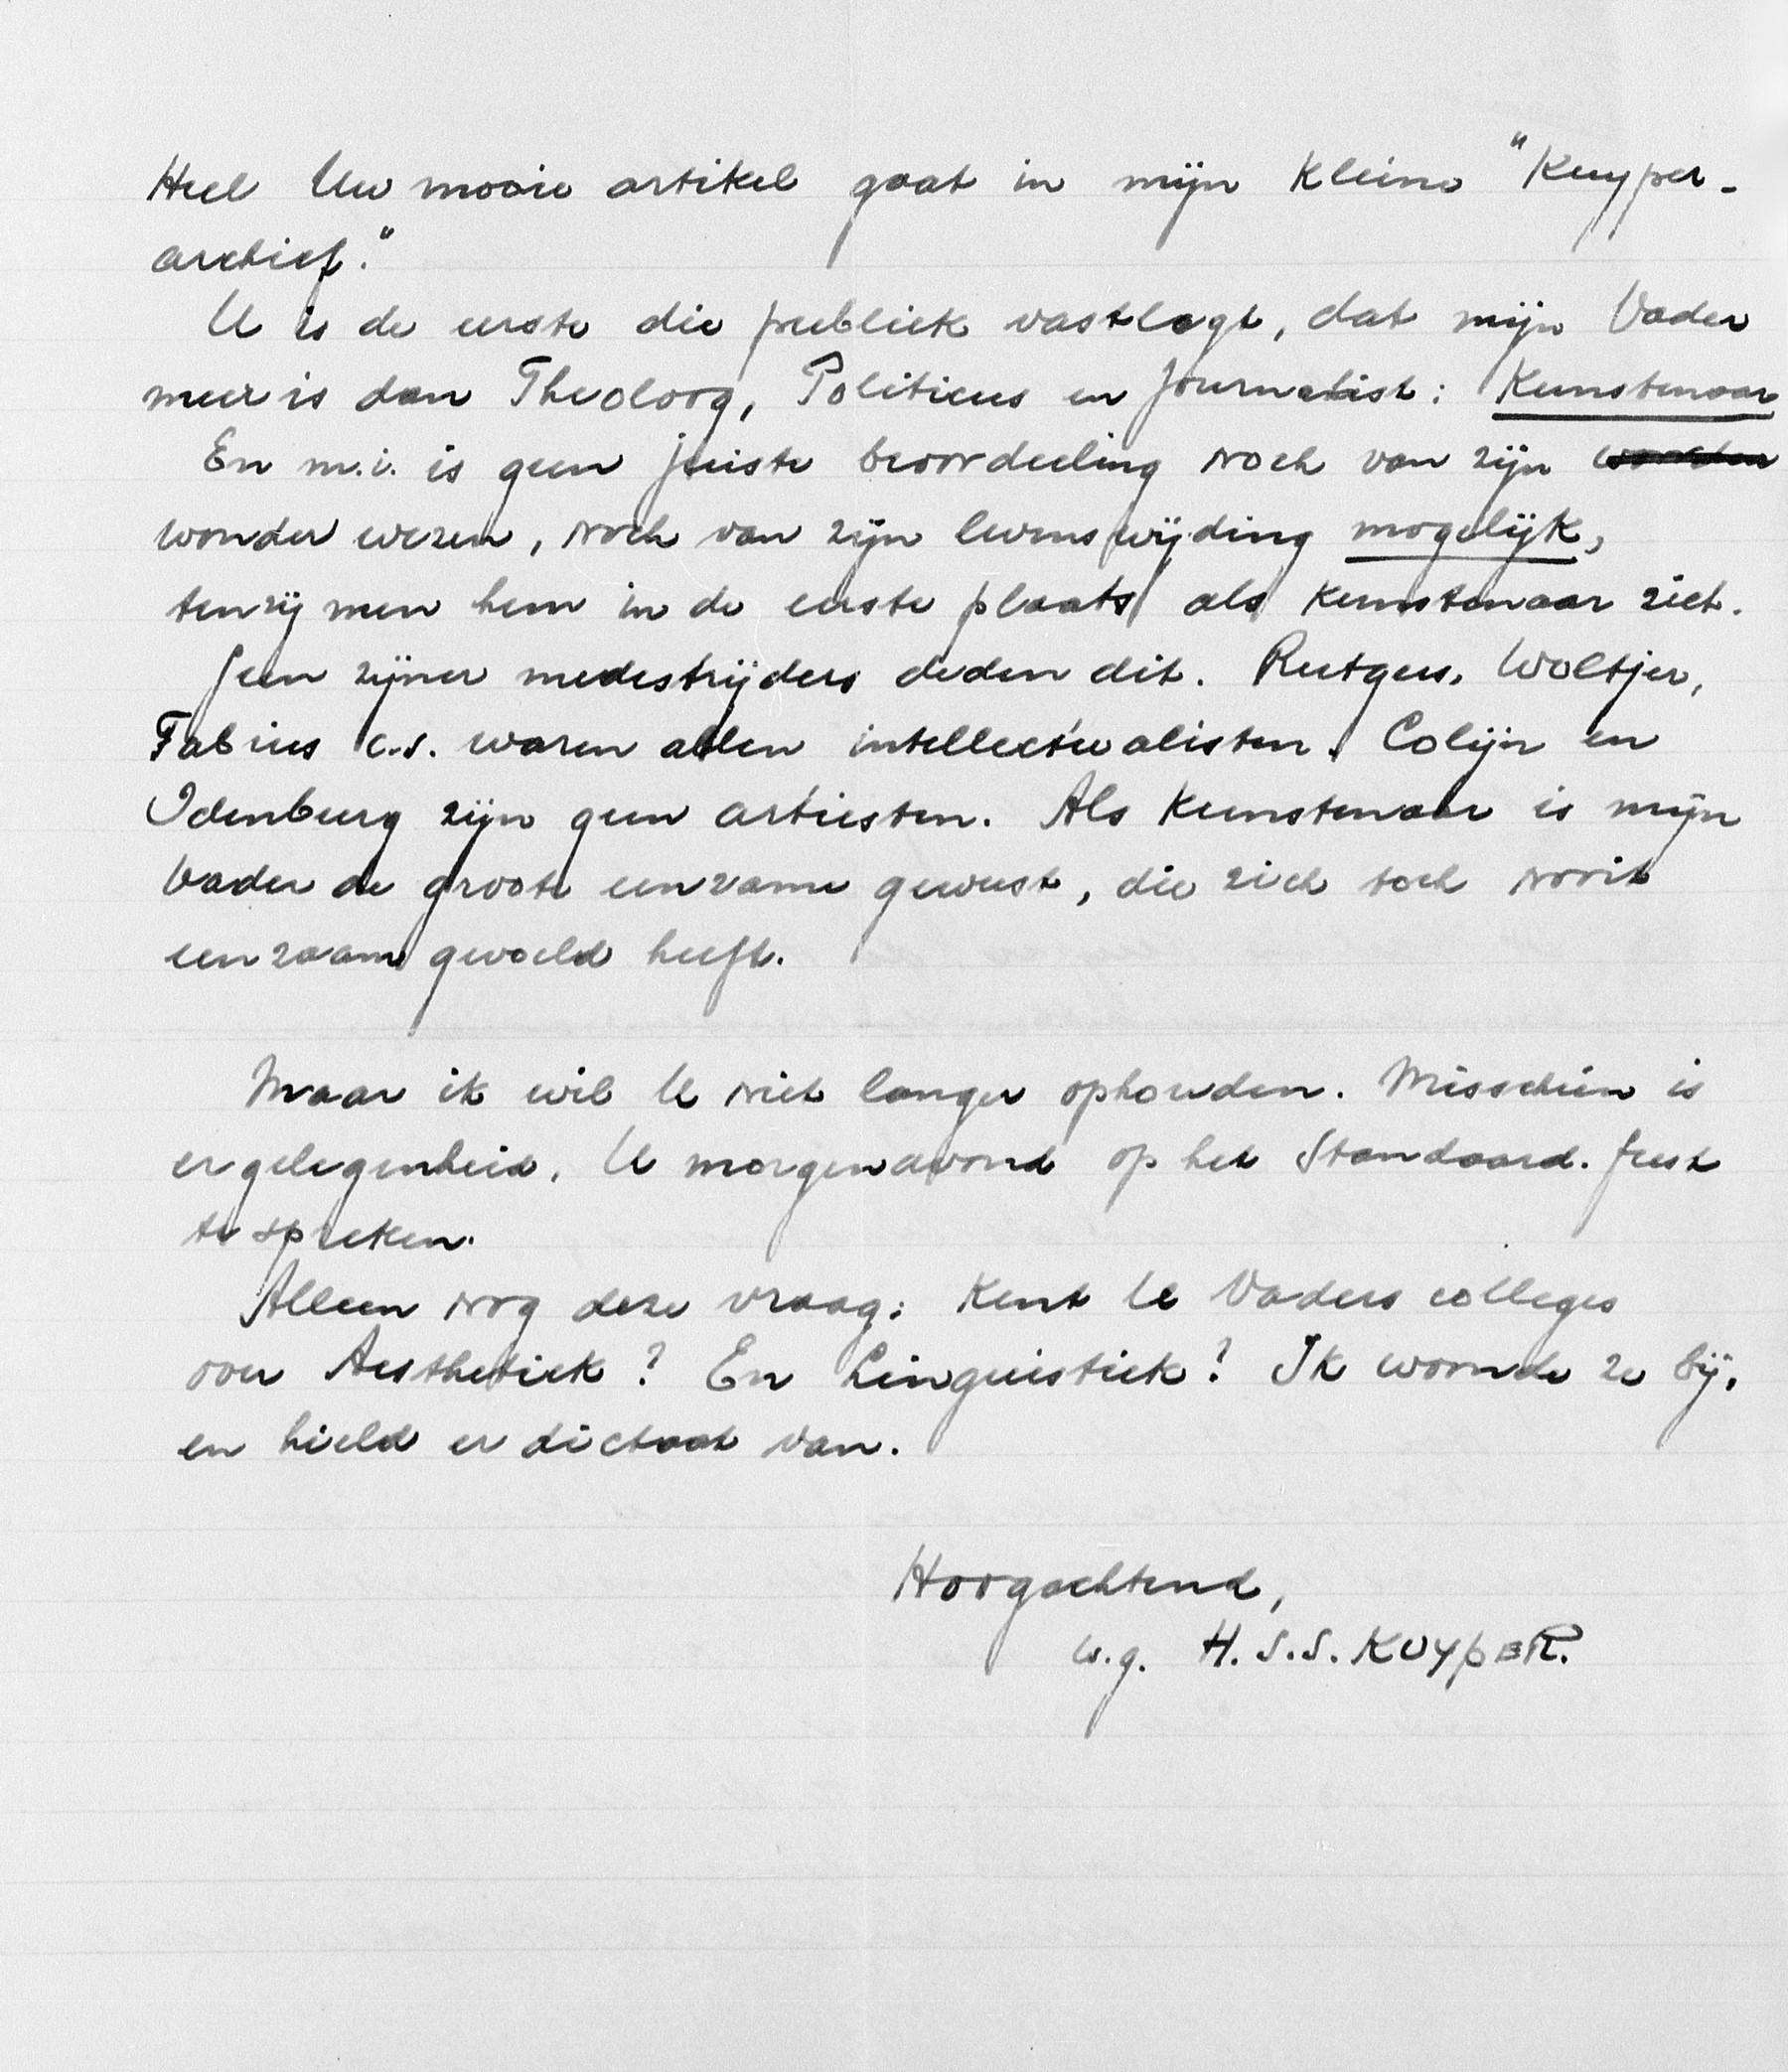 Heel Uw mooie artikel gaat in mijn kleine "Kuyper-
archief."
U is de eerste die publiek vastlegt, dat mijn Vader
meer is dan Theoloog, Politicus en Journalist: Kunstenaar
En m.i. is geen juiste beoordeeling noch van zijn
wonder wezen, noch van zijn levenswijding mogelijk,
tenzij men hem in de eerste plaats als Kunstenaar ziet.
Geen zijner medestrijders deden dit. Rutgers, Woltjer,
Fabius c.s. waren allen intellectualisten. Colijn en
Idenburg zijn geen artiesten. Als Kunstenaar is mijn
Vader de groote eenzame geweest, die zich toch nooit
eenzaam gevoeld heeft.
Maar ik wil U niet langer ophouden. Misschien is
er gelegenheid, U morgenavond op het Standaard-feest
te spreken.
Alleen nog deze vraag: Kent U Vaders colleges
over Aesthetiek? En Linguistiek? Ik woonde ze bij,
en hield er dictaat van.
Hoogachtend,
w.g. H.S.S. KUYPER.